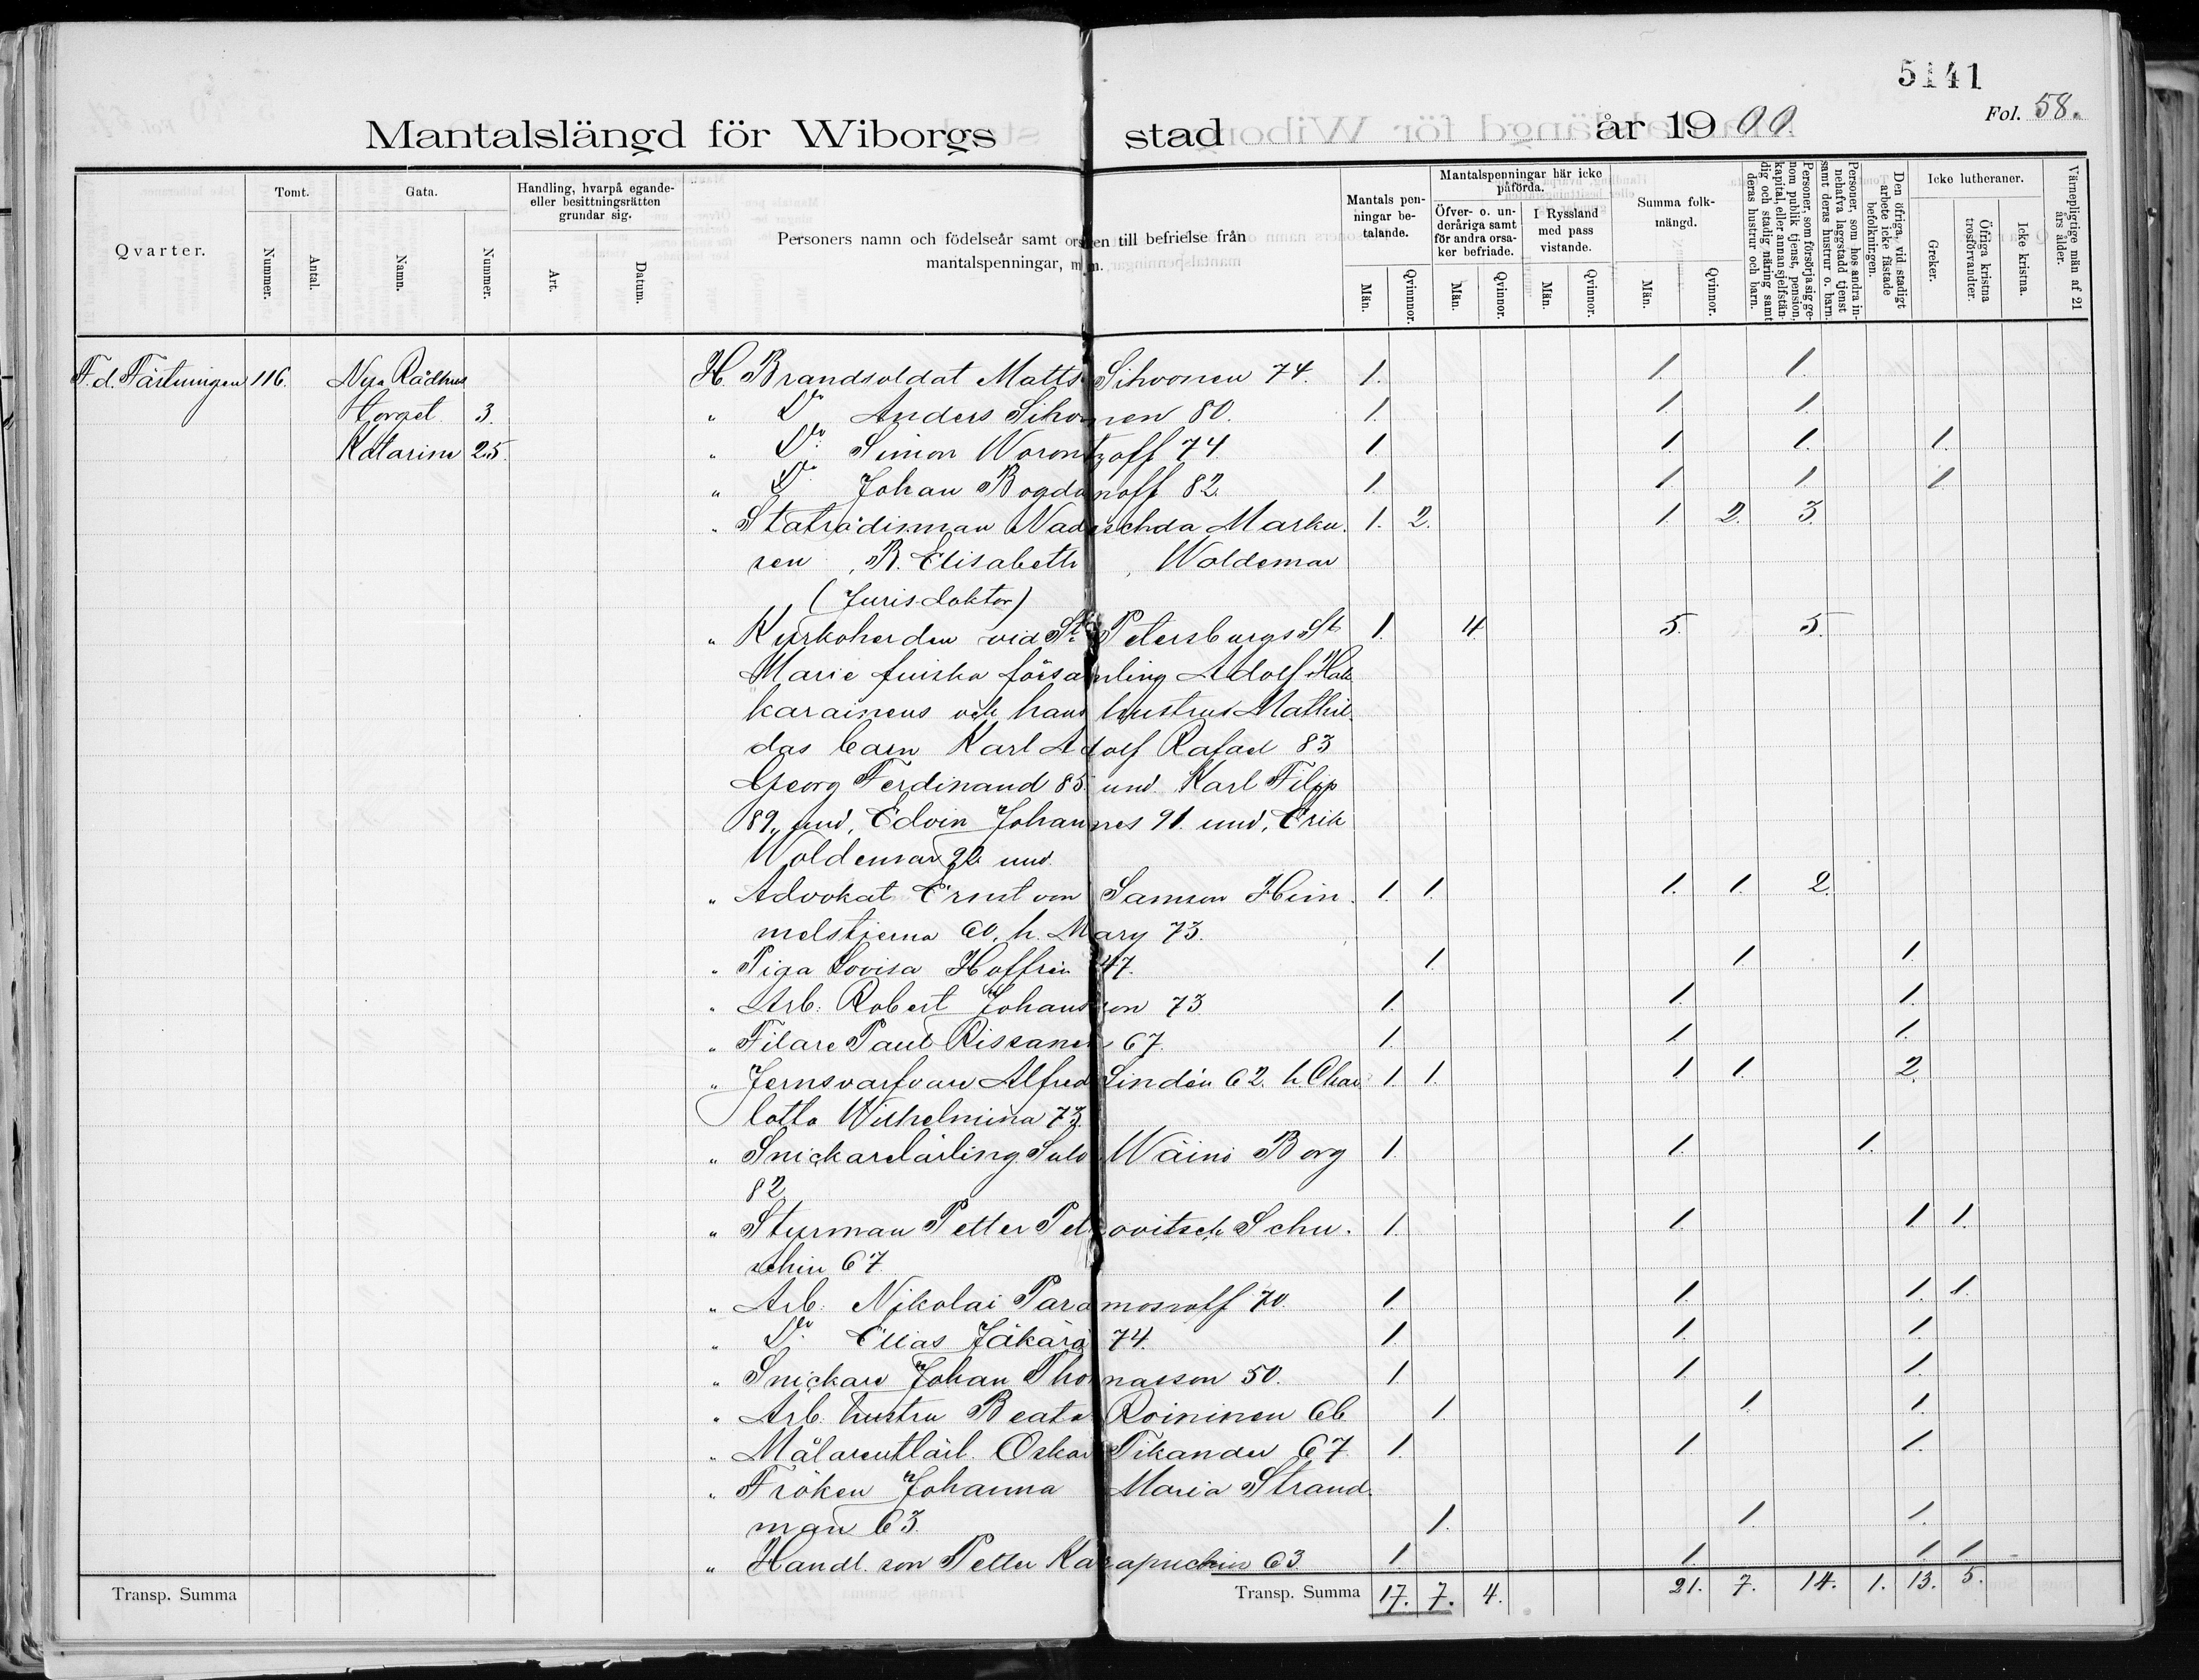 5141
Fol. 58.
Mantalslängd för Wiborgs stad år 1900
Qvarter.
Tomt.
Nummer.
Antal.
Gata.
Namn.
Nummer.
Handling, hvarpå egande- eller besittningsrätten grundar sig.
Art.
Datum.
Personers namn och födelseår samt orsaken till befrielse från mantalspenningar, m. m.
Mantals penningar betalande.
Män.
Qvinnor.
Mantalspenningar här icke påförda.
Öfver- o. underåriga samt för andra orsaker befriade.
Män.
Qvinnor.
I Ryssland med pass vistande.
Män.
Qvinnor.
Summa folkmängd.
Män.
Qvinnor.
Personer, som försörja sig genom publik tjenst, pension, kapital, eller annan sjelfständig och stadig näring samt deras hustrur och barn.
Personer, som hos andra innehafva laggstadd tjenst samt deras hustrur o. barn.
Den öfriga, vid stadigt arbete icke fästade befolkningen.
Icke lutheraner.
Greker.
Öfriga kristna trosförvandter.
Icke kristna.
Värnepligtige män af 21 års ålder.
F. d. Fästningen 116. Nya Rådhus H. Brandsoldat Matts Sihvonen 74. 1. 1. 1.
torget 3. " Do Anders Sihvonen 80. 1. 1. 1.
Katarine 25. " Do Simon Worontzoff 74 1. 1. 1. 1.
" Do Johan Bogdanoff 82. 1. 1. 1. 1.
" Statrådinnan Nadeschda Marku- 1. 2. 1. 2. 3.
sen, R. Elisabeth, Woldemar
(Juris doktor)
" Kyrkoherden vid St. Petersburgs St 1. 4. 5. 5.
Marie finska församling Adolf Hak
karainens och hans hustrus Mathil
das barn Karl Adolf Rafael 83
Georg Ferdinand 85 und. Karl Filip
89, und, Edvin Johannes 91. und, Erik
Woldemar 92. und.
" Advokat Ernst von Samson Him- 1. 1. 1. 1. 2.
melstjerna 60, h. Mary 73.
" Piga Lovisa Hoffrén 47. 1. 1. 1.
" Arb. Robert Johansson 73 1. 1. 1.
" Filare Paul Rissanen 67. 1. 1. 1.
" Jernsvarfvare Alfred Lindén 62. h. Char 1. 1. 1. 1. 2.
lotta Wilhelmina 73.
" Snickarelärling Sulo Wäinö Borg 1. 1. 1.
82
" Styrman Petter Petrovitsch Schu- 1. 1. 1. 1.
schin 67
" Arb. Nikolai Paramonoff 70. 1. 1. 1. 1.
" Do Elias Jäkärä 74. 1. 1. 1.
" Snickare Johan Thomasson 50. 1. 1. 1.
" Arb. hustru Beata Roininen 66 1. 1. 1.
" Målareutlärl. Oskar Tikander 67 1. 1. 1.
" Fröken Johanna Maria Strand-
man 63. 1. 1. 1.
" Handl. son Petter Karapuchin 63 1. 1. 1. 1.
Transp. Summa
Transp. Summa 17. 7. 4. 21. 7. 14. 1. 13. 5.